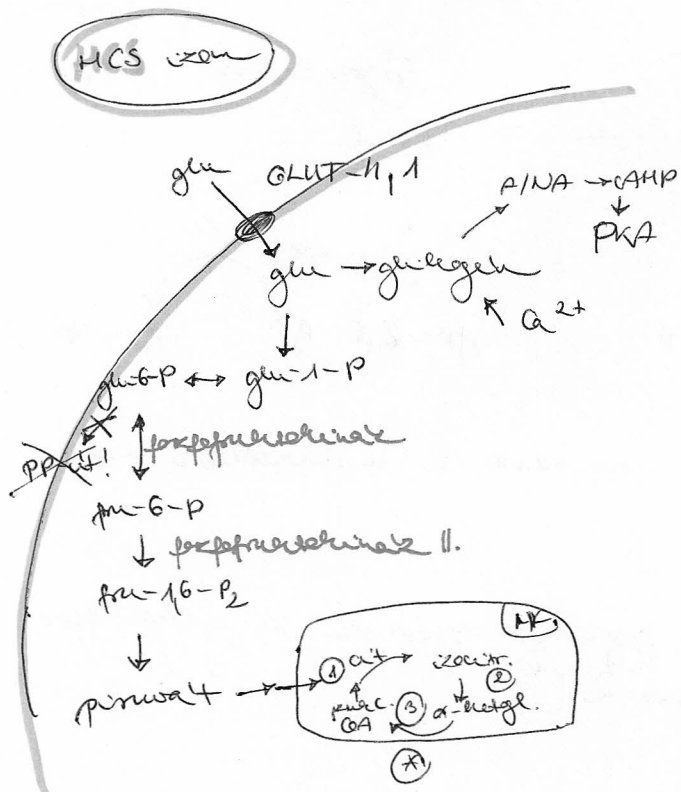 HCS izom
glu GLUT-4, 1
A/NA → cAMP
↓
PKA
glu → glikogén
Ca2+
glu-6-P ↔ glu-1-P
PP-út!
foszfofruktokináz
fru-6-P
foszfofruktokináz II.
fru-1,6-P2
MK
piruvát
① cit izocitr.
②
CoA ③ α-ketogl.
*